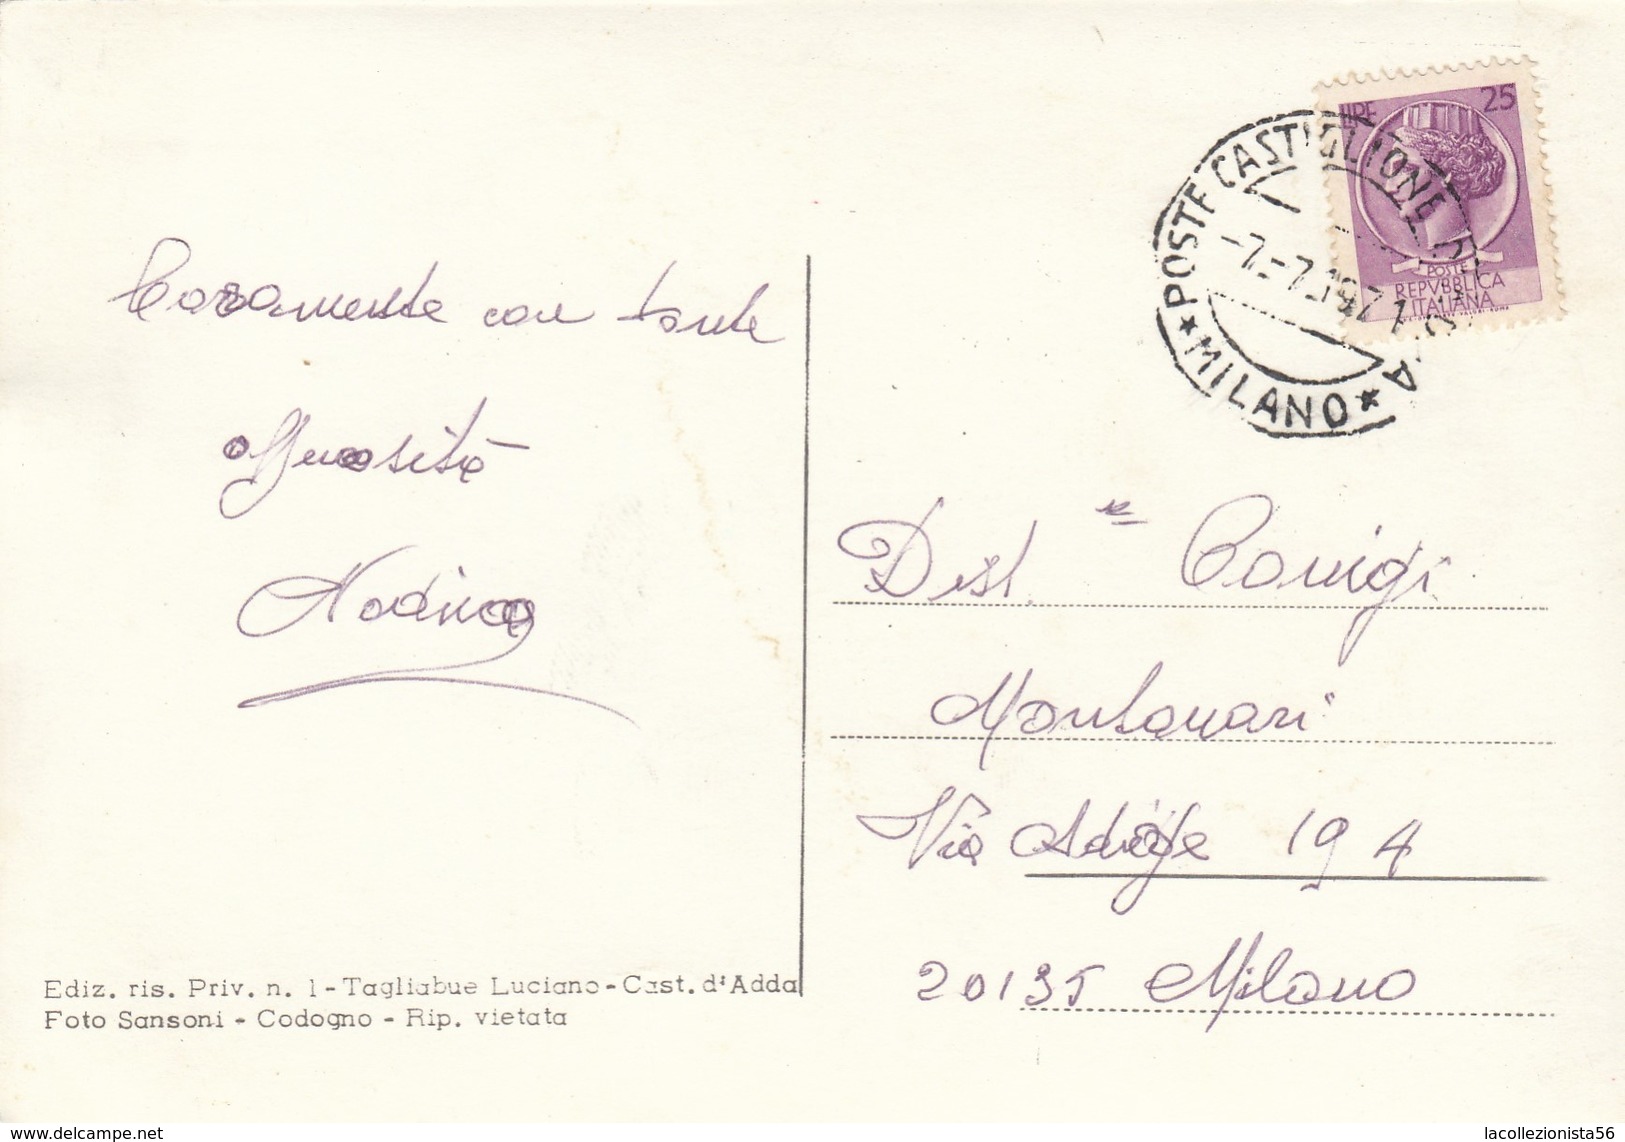 Caramente con tante
affettuosità
Nadina
LIRE 25
POSTE
REPVBBLICA
ITALIANA
POSTE CASTIGLIONE D'ADDA
-7.-7.1971
* MILANO *
Dist. Coniugi
Montanari
Via Adige 19 4
20135 Milano
Ediz. ris. Priv. n. 1 - Tagliabue Luciano - Cast. d'Adda
Foto Sansoni - Codogno - Rip. vietata
www.delcampe.net
lacollezionista56